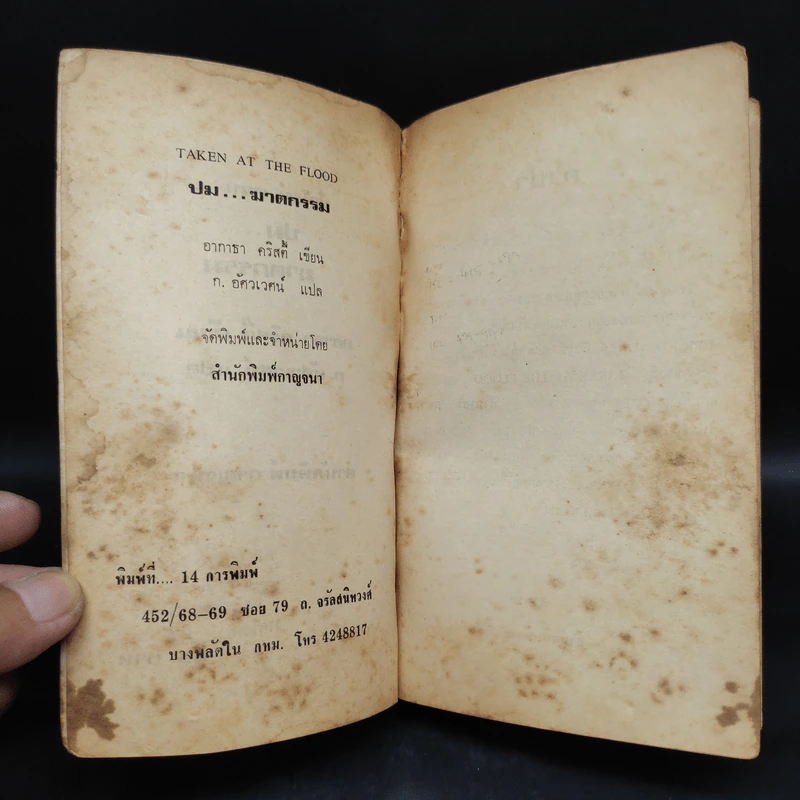 TAKEN AT THE FLOOD
ปม...ฆาตกรรม
อากาธา คริสตี้ เขียน
ก. อัศวเวศน์ แปล
จัดพิมพ์และจำหน่ายโดย
สำนักพิมพ์กาญจนา
พิมพ์ที่.... 14 การพิมพ์
452/68-69 ซอย 79 ถ. จรัลสนิทวงศ์
บางพลัดใน กทม. โทร 4248817